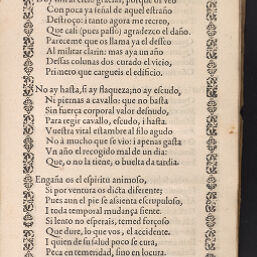 Doy mil al cielo gracias, porque os veo
Con poca ya señal de aquel estraño
Destroço: i tanto agora me recreo,
Que casi (pues passò) agradezco el daño.
Pareceme que os llama ya el desseo
Al militar clarin: mas aya un año
Dessas colunas dos cutado el vicio,
Primero que carguèis el edificio.
No ay hasta, si ay flaqueza; no ay escudo,
Ni piernas a cavallo: que no basta
Sin fuerça corporal valor desnudo,
Para regir cavallo, escudo, i hasta.
Vuestra vital estambre al filo agudo
No à mucho que se vio: i apenas gasta
Vn año el recogido mal de un dia:
Que, o no la tiene, o buelta da tardia.
Engaña os el espiritu animoso,
Si por ventura os dicta diferente;
Pues aun el pie se assienta escrupuloso,
I toda temporal mudança siente.
Si lento no esperais, temed forçoso
Que dure, lo que vos, el accidente.
I quien de su salud poco se cura,
Peca en temeridad, sino en locura.